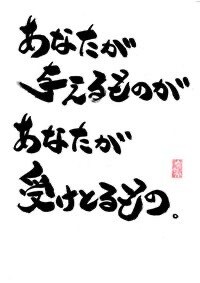 あなたが
与えるものが
あなたが
受けとるもの。